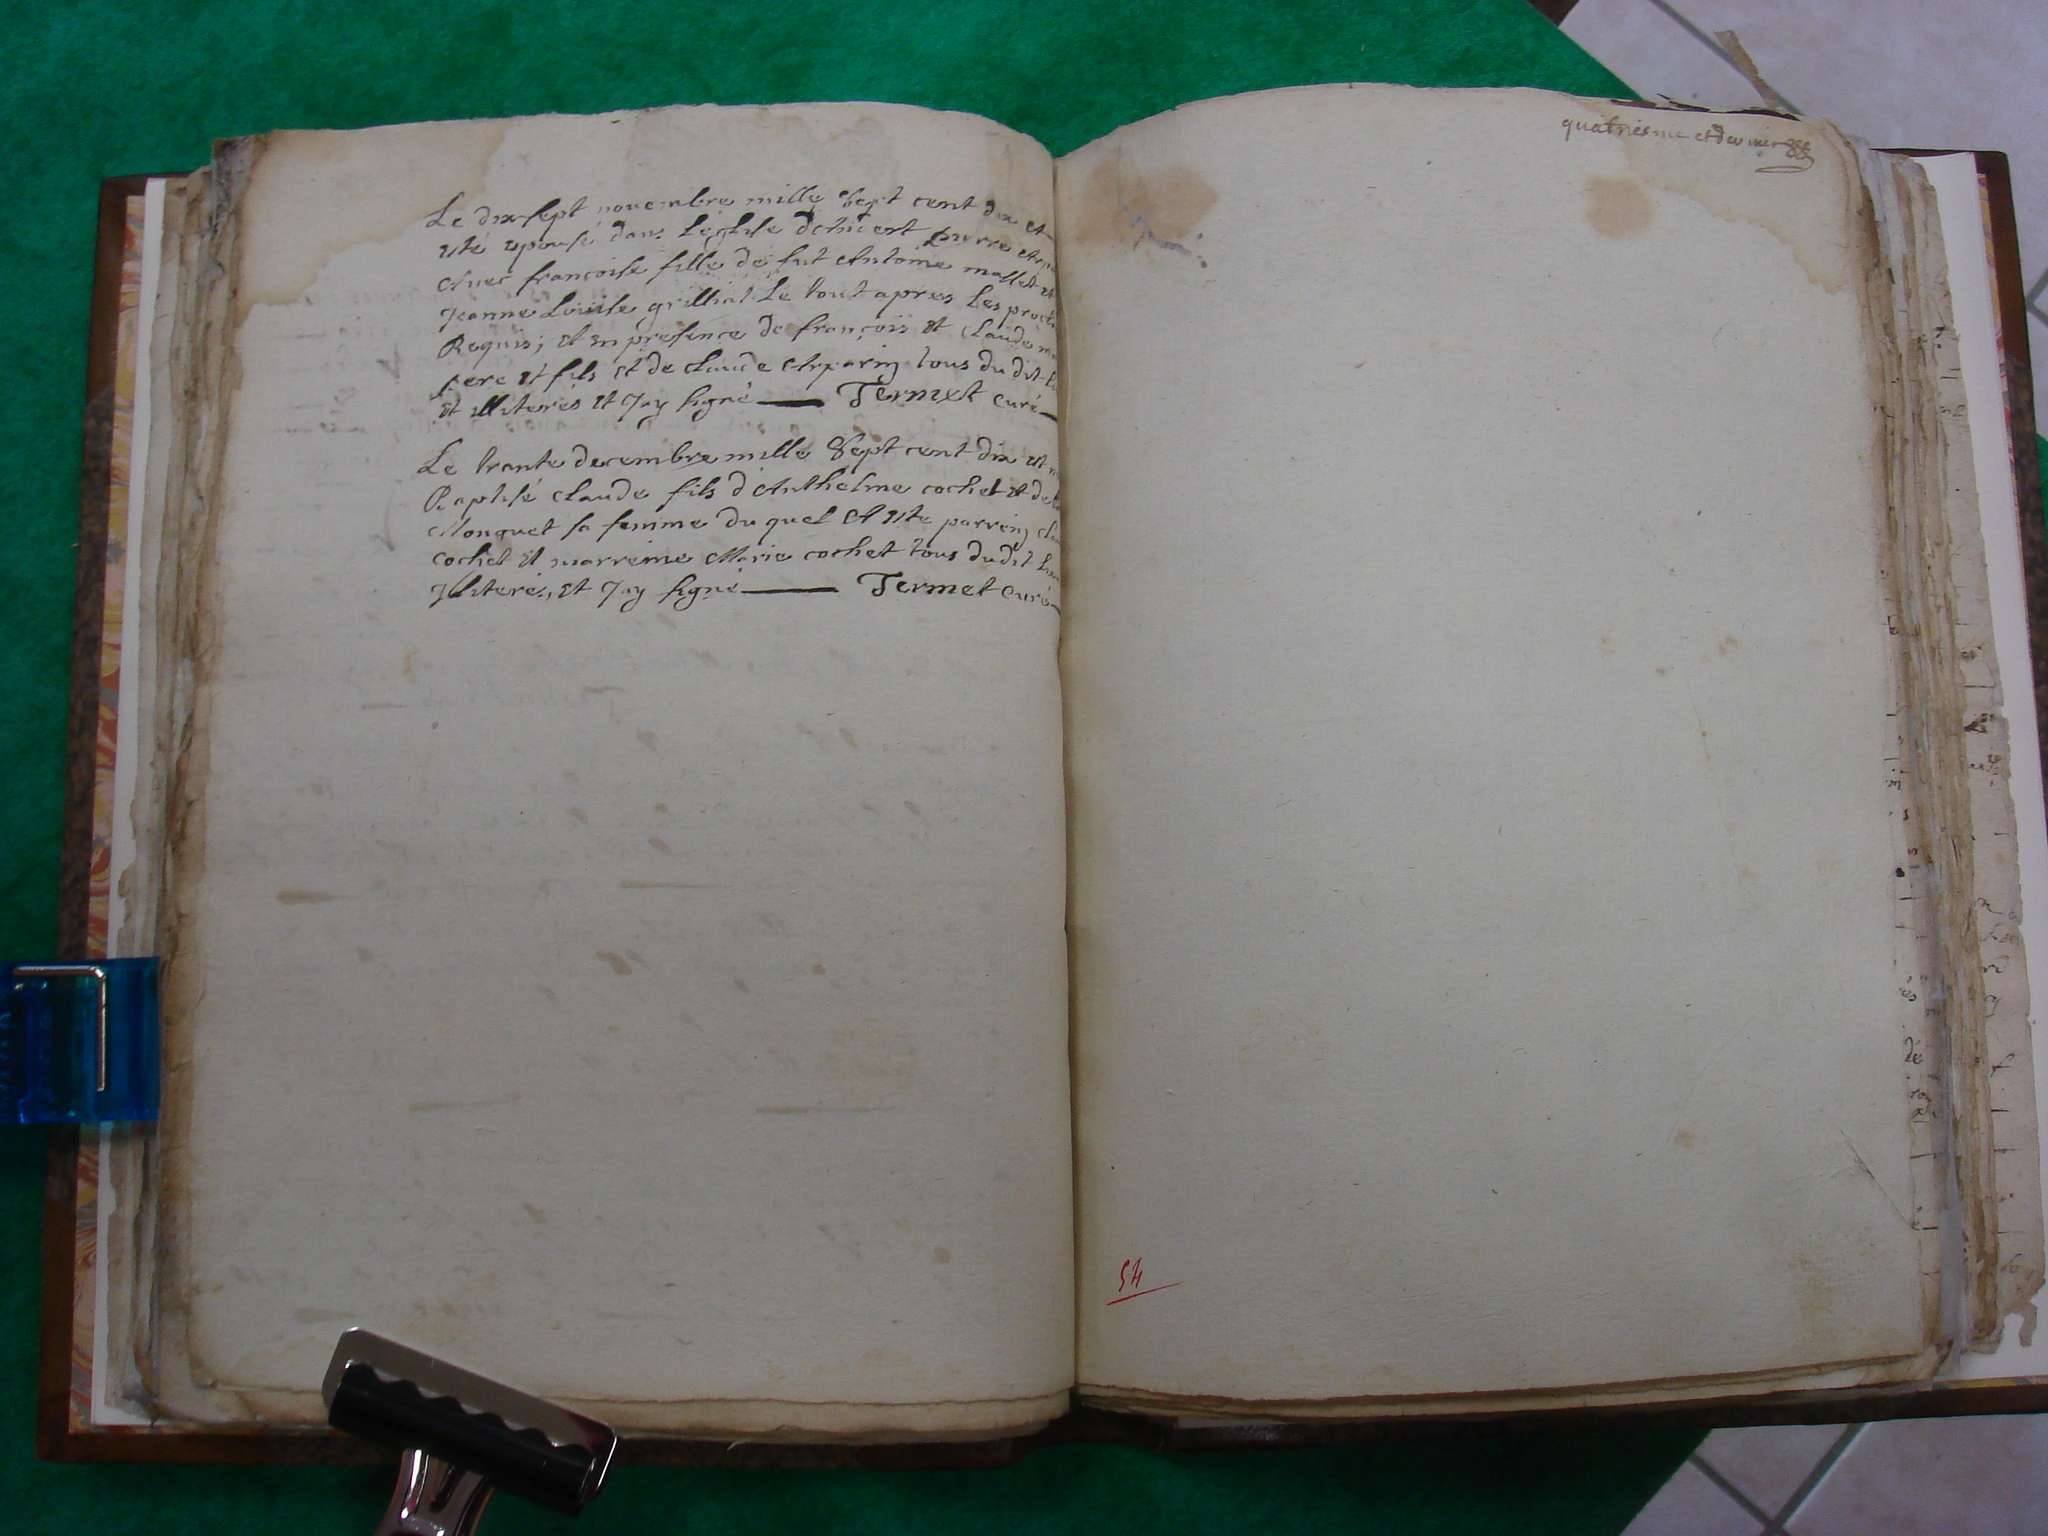 Le dix sept novembre mille sept cent dix et
eté epousé dans Leglise dehiert pierre
Avec francoise fille de fut Antoine mallet et
Jeanne Louise grilliat Le tout apres Les procla
Requis; et en presence de françois et Claude
pere et fils et de claude Arparin tous du dit
et illiteres et Jay signé Termet curé
Le trante decembre mille sept cent dix et
Baptisé claude fils d Anthelme cochet et de
Monguet sa femme du quel A ete parrein
cochet et marreine Marie cochet tous dudit Lieu
Jlliterés, et Jay signé Termet curé
quatriesme et dernier
54